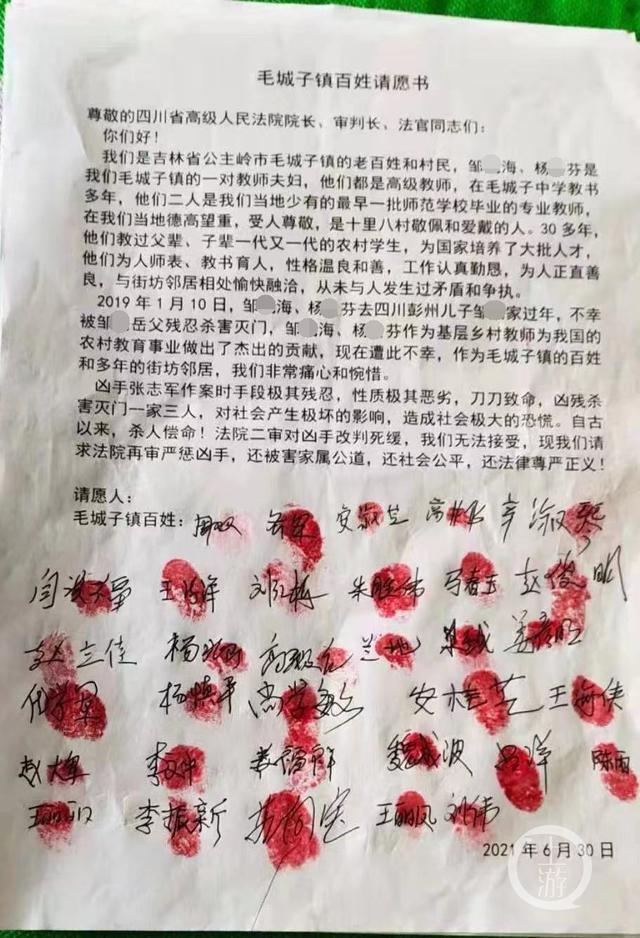 毛城子镇百姓请愿书
尊敬的四川省高级人民法院院长、审判长、法官同志们：
你们好！
我们是吉林省公主岭市毛城子镇的老百姓和村民，邹 海、杨 芬是
我们毛城子镇的一对教师夫妇，他们都是高级教师，在毛城子中学教书
多年，他们二人是我们当地少有的最早一批师范学校毕业的专业教师，
在我们当地德高望重，受人尊敬，是十里八村敬佩和爱戴的人。30 多年，
他们教过父辈、子辈一代又一代的农村学生，为国家培养了大批人才，
他们为人师表、教书育人，性格温良和善，工作认真勤恳，为人正直善
良，与街坊邻居相处愉快融洽，从未与人发生过矛盾和争执。
2019 年 1 月 10 日，邹 海、杨 芬去四川彭州儿子邹 家过年，不幸
被邹 岳父残忍杀害灭门，邹 海、杨 芬作为基层乡村教师为我国的
农村教育事业做出了杰出的贡献，现在遭此不幸，作为毛城子镇的百姓
和多年的街坊邻居，我们非常痛心和惋惜。
凶手张志军作案时手段极其残忍，性质极其恶劣，刀刀致命，凶残杀
害灭门一家三人，对社会产生极坏的影响，造成社会极大的恐慌。自古
以来，杀人偿命！法院二审对凶手改判死缓，我们无法接受，现我们请
求法院再审严惩凶手，还被害家属公道，还社会公平，还法律尊严正义！
请愿人：
毛城子镇百姓： 安淑兰
王海洋 刘红梅 朱胜伟 马春玉 赵俊明
赵立佳
杨慎平 安桂芝 王海侠
魏成波 吕洋 陈雨
李振新 王丽凤 刘伟
2021 年 6 月 30 日
上游